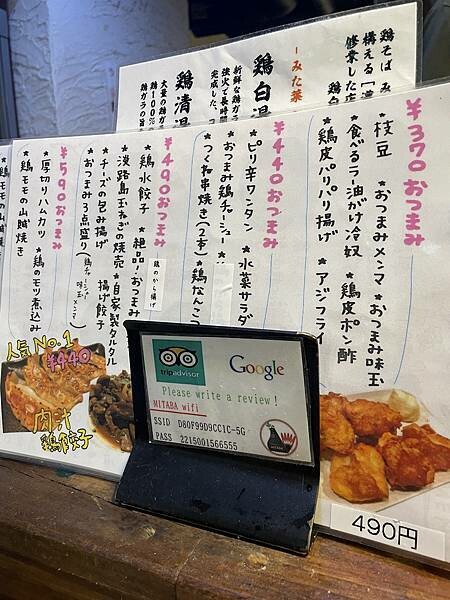 鶏そば
構える「
修業した店
鶏白
ーみた葉
鶏白湯
新鮮な鶏ガラ
強火で長時間
完成した、コ
鶏清湯
大量の鶏ガラ
鶏100%の
鶏ガラの旨
¥370おつまみ
★枝豆 ★おつまみメンマ ★おつまみ味玉
★食べるラー油がけ冷奴 ★鶏皮ポン酢
★鶏皮パリパリ揚げ ★アジフライ
¥440おつまみ
★ピリ辛ワンタン ★水菜サラダ
★おつまみ鶏チャーシュー
★つくね串焼き(2本) ★鶏なんこつ
¥490おつまみ
★鶏水餃子 ★絶品!おつまみ
鶏のから揚げ
★淡路島玉ねぎの焼売 ★自家製タルタル
★チーズの包み揚げ 揚げ餃子
★おつまみ3点盛り(鶏チャーシュー 味玉 メンマ)
¥590おつまみ
★厚切りハムカツ ★鶏のモツ煮込み
★鶏モモの山賊焼き
★鶏モモの山賊焼
人気No.1
¥440
肉汁
鶏餃子
tripadvisor
Google
Please write a review!
MITABA wifi
SSID D80F99D9CC1C-5G
PASS 2215001566555
490円